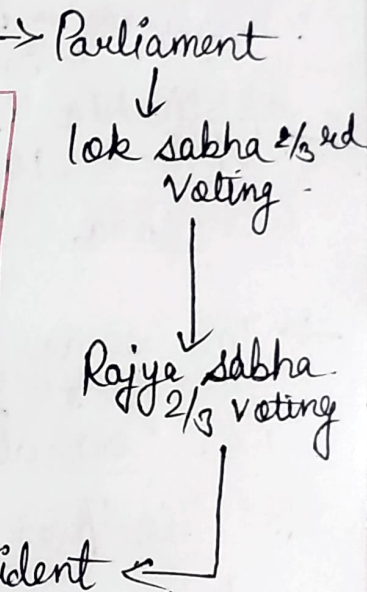 → Parliament
↓
lok sabha 2/3 rd
Voting
↓
Rajya sabha
2/3 voting
ident ←